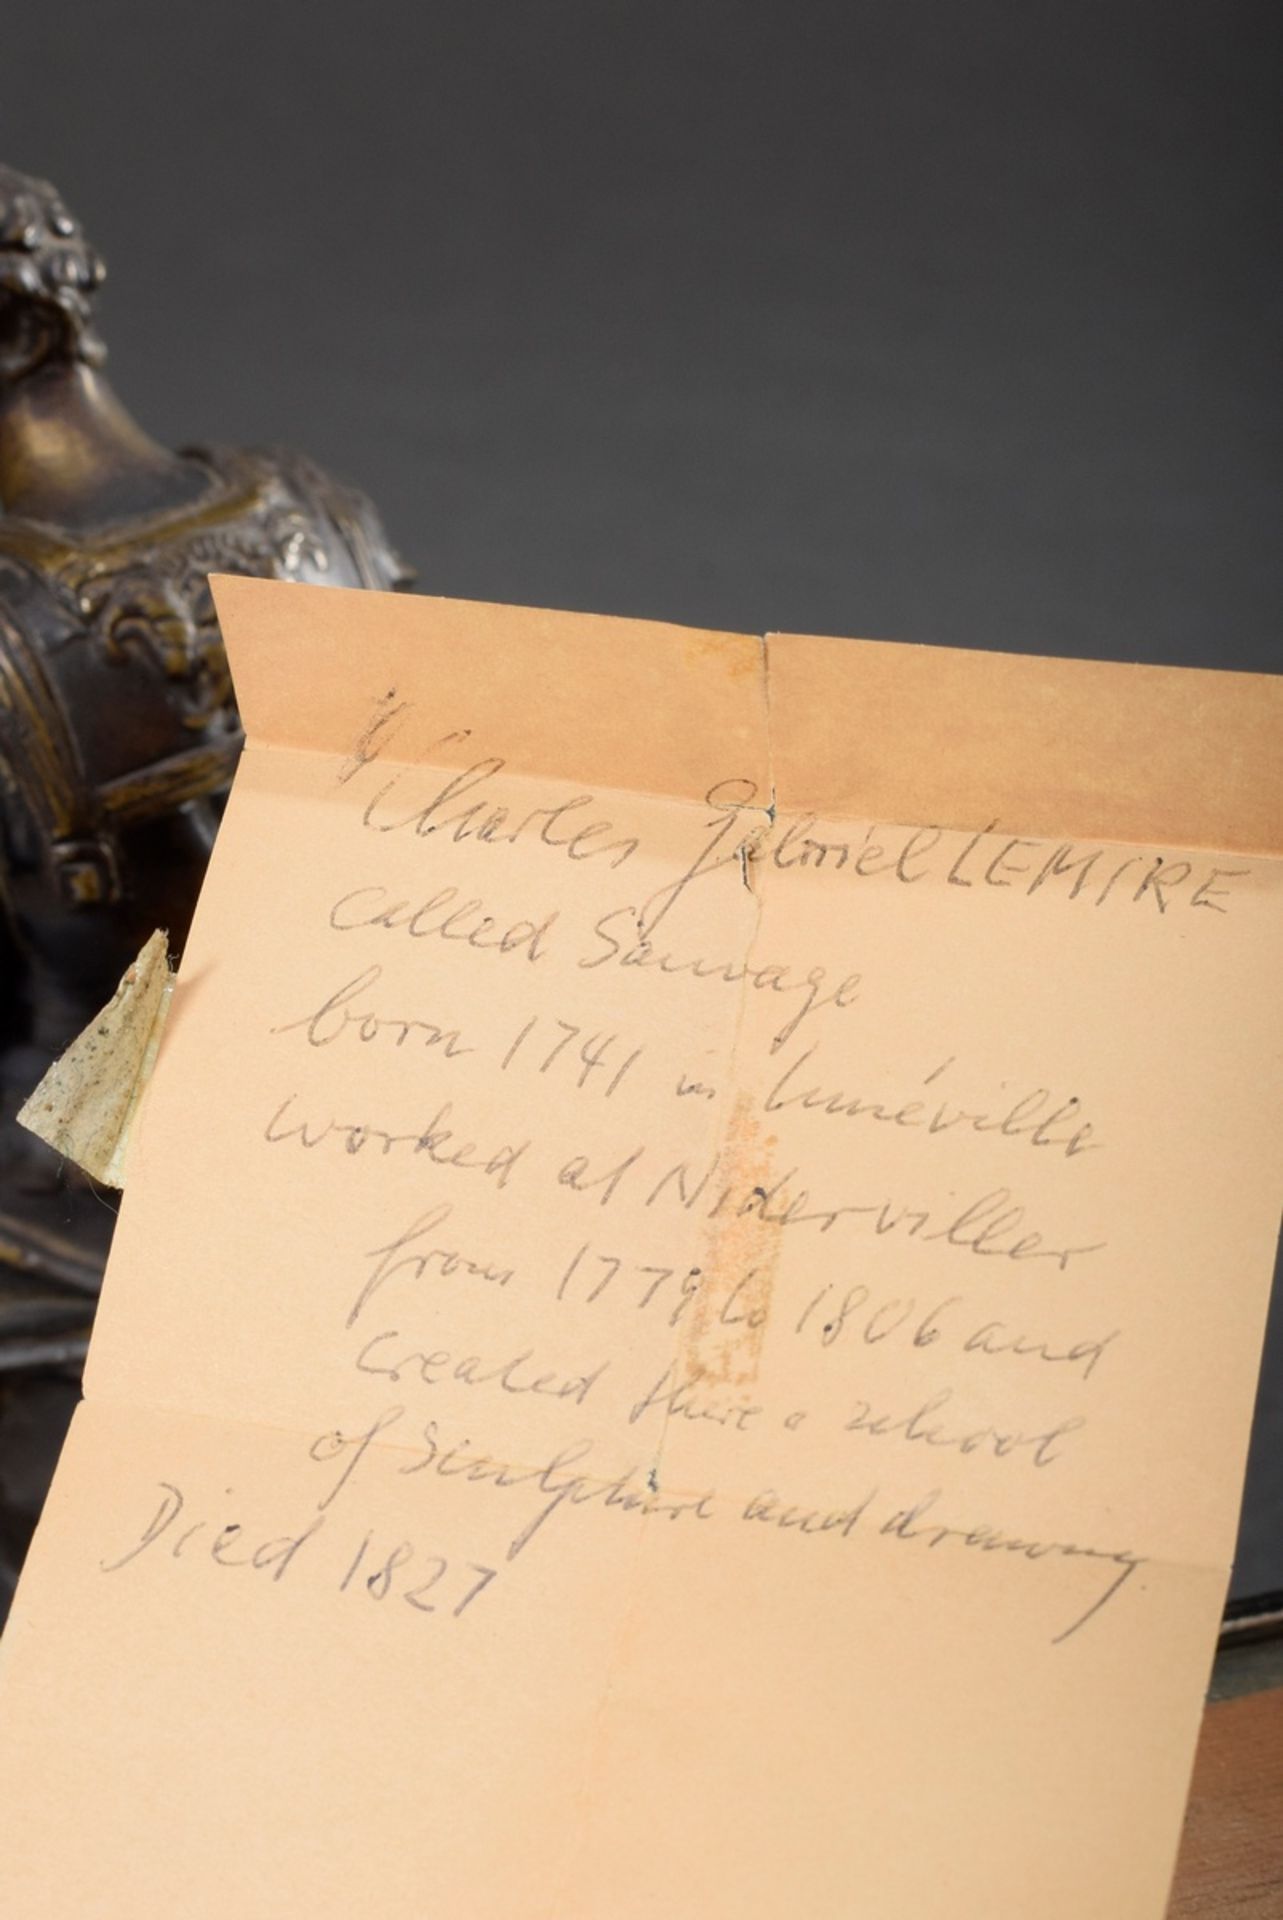 Charles Gabriel LEMIRE
called Sauvage
born 1741 in Lunéville
worked at Niderviller
from 1779 to 1806 and
created there a school
of sculpture and drawing.
Died 1827